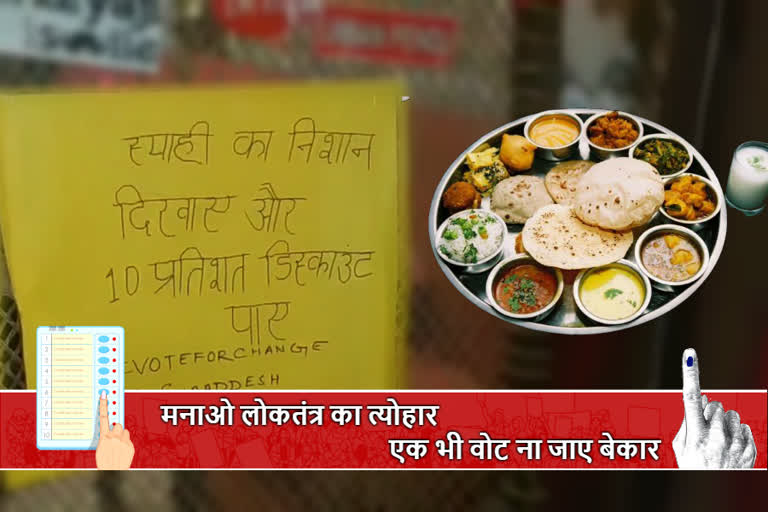 स्याही का निशान
दिखाए और
10 प्रतिशत डिस्काउंट
पाए
VOTEFORCHANGE
मनाओ लोकतंत्र का त्योहार
एक भी वोट ना जाए बेकार